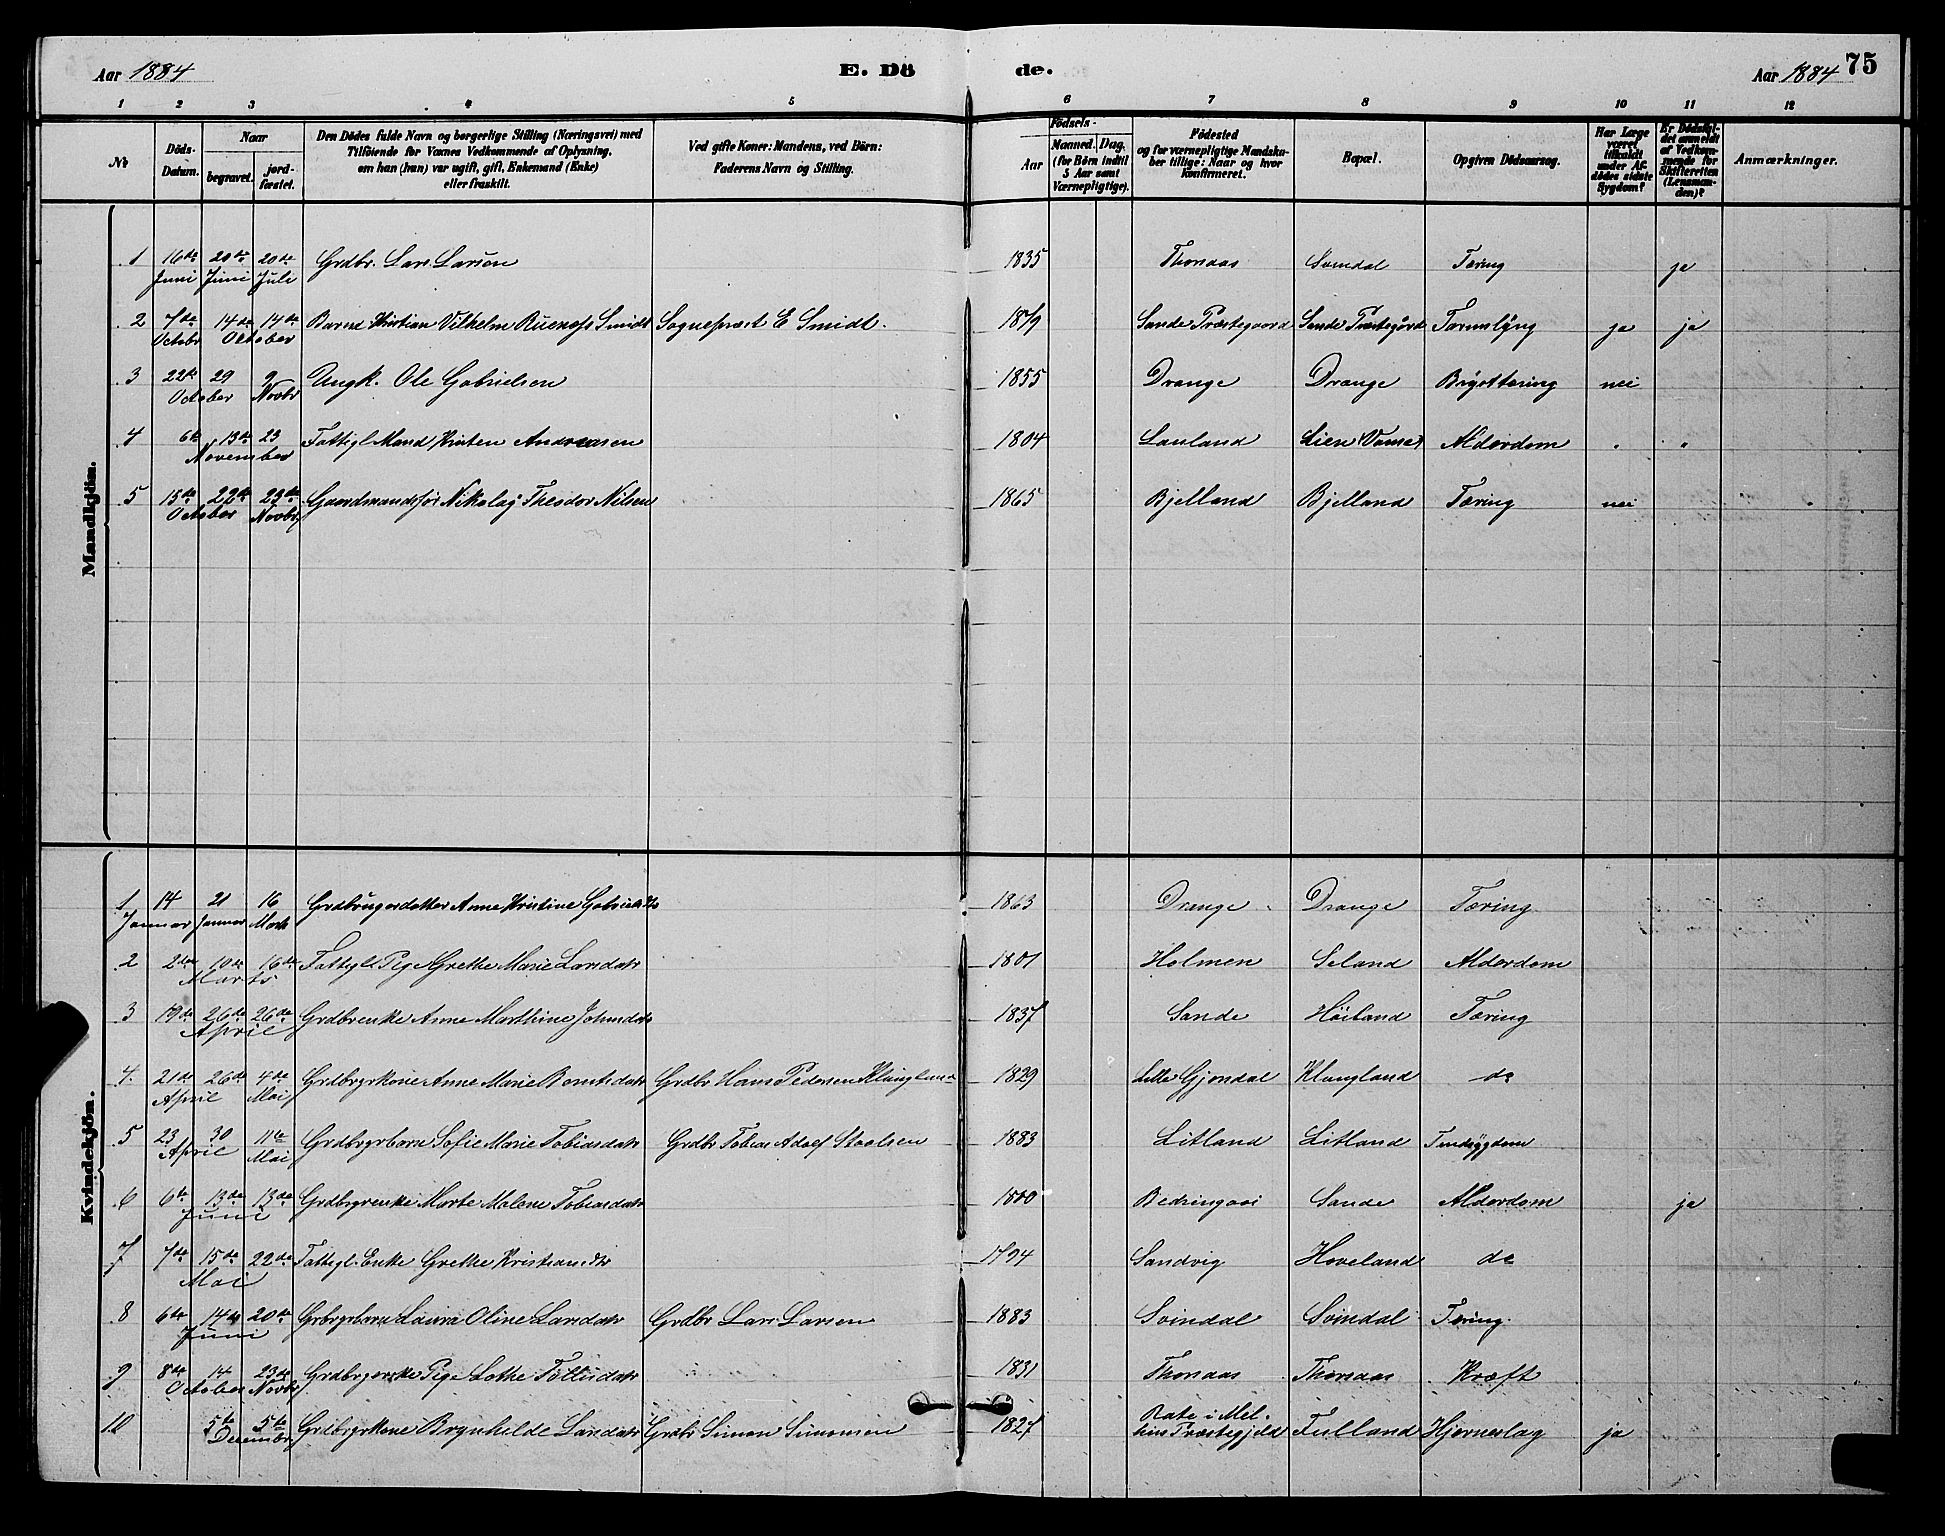 Aar 1884 E. Dö de. Aar 1884 75
1 2 3 4 5 6 7 8 9 10 11 12
No Döds-Datum. Naar begravet. jordfæstet. Den Dödes fulde Navn og borgerlige Stilling (Næringsvei) med Tilföiende for Voxnes Vedkommende af Oplysning, om han (hun) var ugift, gift, Enkemand (Enke) eller fraskilt. Ved gifte Koner: Mandens, ved Börn: Faderens Navn og Stilling. Födsels- Aar Maaned. Dag. (for Børn indtil 5 Aar samt Værnepligtige). Födested og for værnepligtige Mandskaber tillige: Naar og hvor konfirmeret. Bopæl. Opgiven Dödsaarsag. Har Læge været tilkaldt under Afdödes sidste Sygdom? Er Dödsfaldet anmeldt af Vedkommende for Skifteretten (Lensmanden)? Anmærkninger.
Mandkjön.
1 16de Juni 20de Juni 20de Juli Grdbr. Lars Larsen 1835 Thonaas Svindal Tæring ja
2 7de Octobr 14de 14de October Barnet Kristian Vilhelm Smidt Sognepræst E Smidt. 1879 Sande Præstegaard Sande Præstegård ja ja
3 22de 29 October 9 Novbr Ungk. Ole Gabrielsen 1855 Drange Drange Brysttæring nei
4 6te 13de 23 November Fattigl. Mand Andreasen 1804 Lauland Lien Alderdom " "
5 15de 22de October 23de Novbr Gaardmandssøn Nikolaj Theodor Nilsen 1865 Bjelland Bjelland Tæring nei "
Kvindekjön.
1 14 Januar 21 Januar 16 Marts Grdbrugerdatter Anne Kristine Gabrielsdtr 1863 Drange Drange Tæring
2 2den 10de 16de Marts Fattigl. Pige Grethe Marie Larsdatr 1801 Holmen Seland Alderdom
3 19de 26de 26de April Grdbrenke Anne Marthine Johnsdatr 1837 Sande Höiland Tæring
4. 21de April 26de 4de Mai Grdbrgrkone Anne Marie Berntsdatr Grdbr Hans Pedersen Klungland 1829 Lille Gjøndal Klungland do
5 23 30 April 11te Mai Grdbrgrbarn Sofie Marie Tobiasdatr Grdbr Tobias Adolf Staalsen 1883 Litland Litland
6 6te 13de 13de Juni Grdbrgrenke Marte Malene Tobiasdatr 1800 Sande Alderdom ja
7 7de 15de 22de Mai Fattigl. Enke Grethe Kristiansdtr 1794 Sandvig Hoveland do
8 6te 14de 20de Juni Grbrgrbarn Laura Oline Larsdatr Grdbr Lars Larsen 1883 Svindal Svindal Tæring.
9 8de 14 October 23de Novbr Pige Lothe 1831 Thonaas Thonaas Kræft
10 5te 5te December Grdbrgrkone Brynhilde Larsdatr Grdbr Simon Simonsen 1827 Præstegjeld Fulland Hjerneslag ja